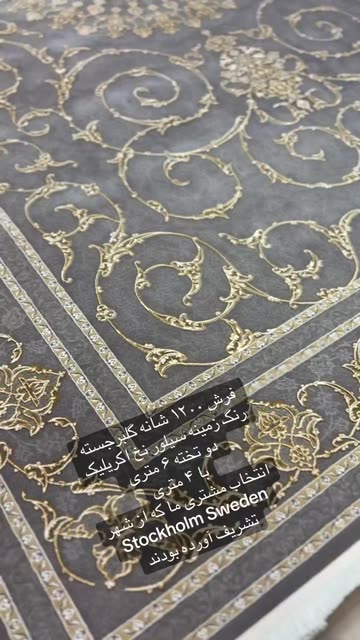 فرش ۱۲۰۰ شانه گلبرجسته
رنگ زمینه سیلور نخ آکریلیک
دو تخته ۶ متری
با ۴ متری
انتخاب مشتری ما که از شهر
Stockholm Sweden
تشریف آورده بودند